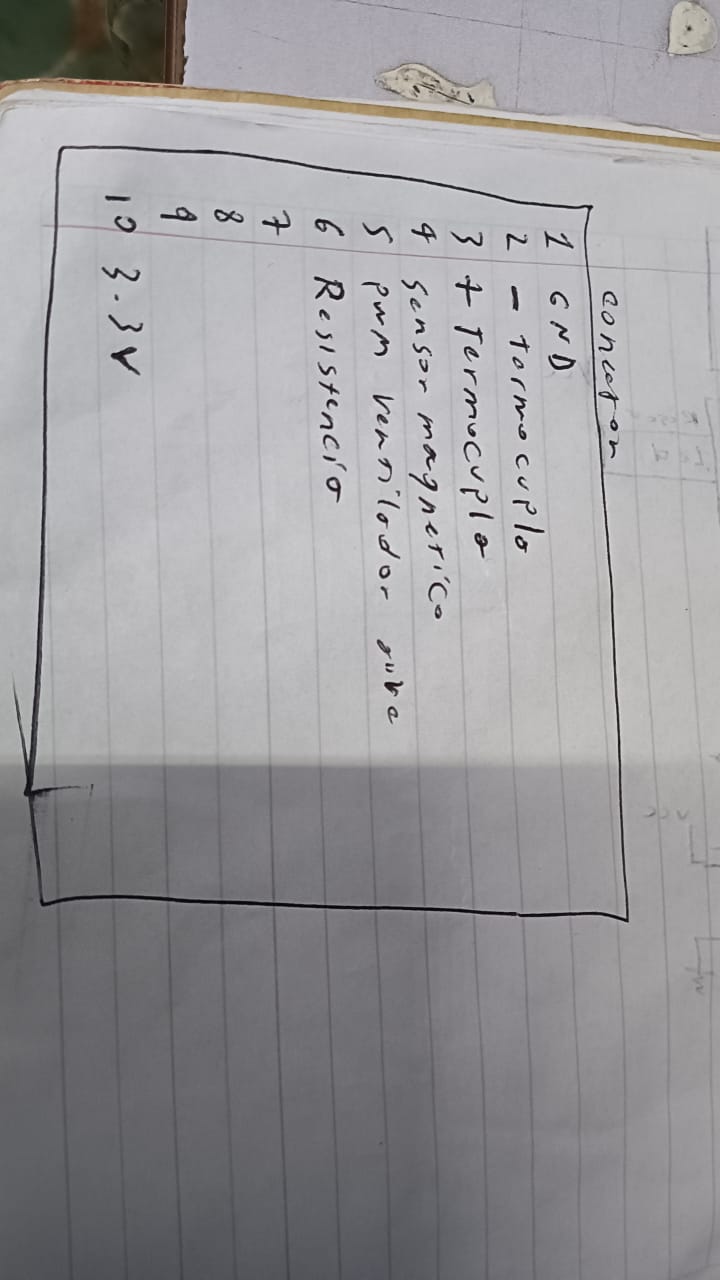 conector
1 GND
2 - tormocuplo
3 + Termocuplo
4 sensor magnetico
5 pwm ventilador
6 Resistencia
7
8
9
10 3.3V